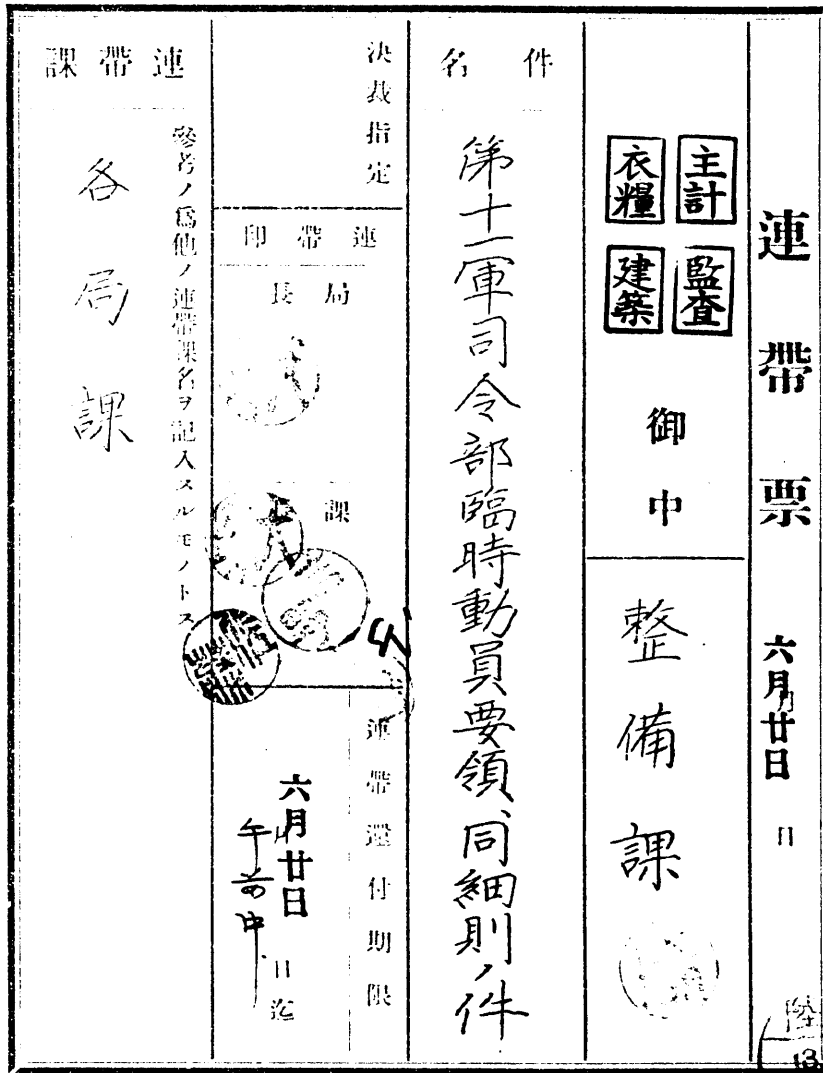 連帶票
六月廿日
月
日
主計
監査
衣糧
建築
御中
整備課
件名
第十一軍司令部臨時動員要領、同細則ノ件
決裁指定
連帶印
局長
課長
連帶還付期限
六月廿日
月
日迄
午前中
連帶課
參考ノ爲他ノ連帶課名ヲ記入スルモノトス
各局課
陸
13